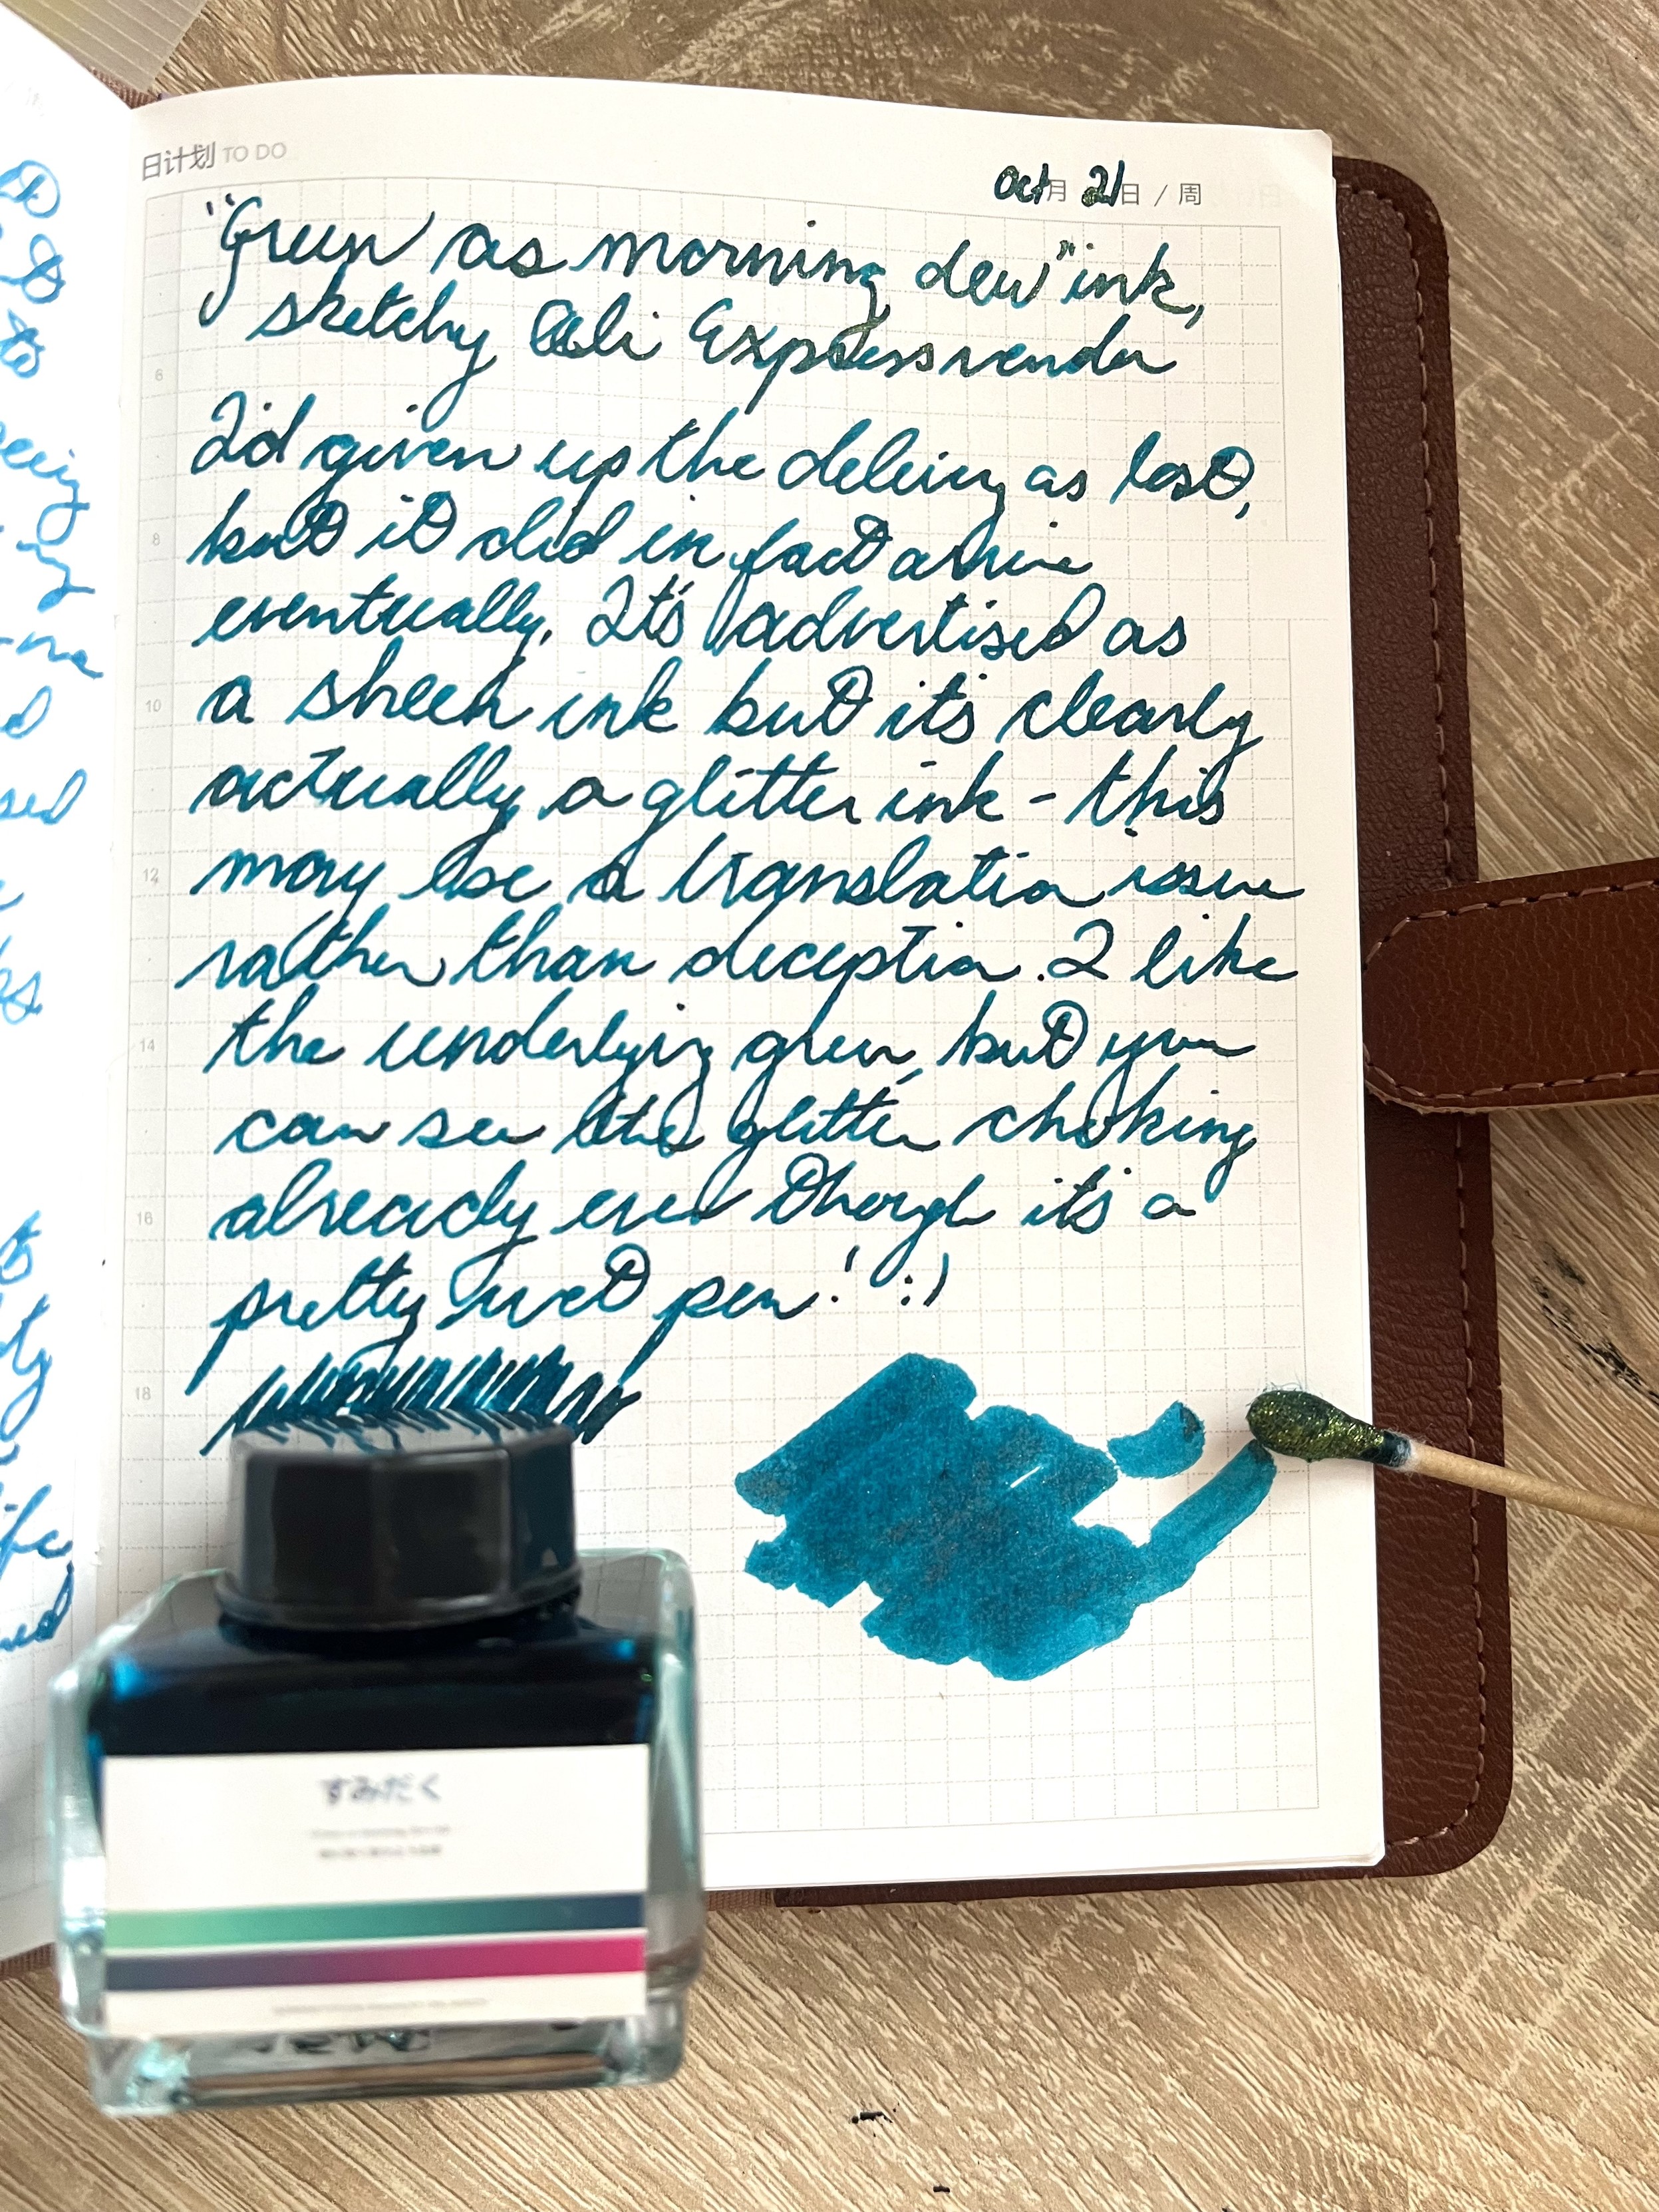 日计划 TO DO
Oct 月 21 日 / 周
"Green as morning dew" ink,
sketchy Ali Express vendor
I'd given up the delivery as lost,
but it did in fact arrive
eventually. It's advertised as
a sheen ink but it's clearly
actually a glitter ink - this
may be a translation issue
rather than deception. I like
the underlying green, but you
can see the glitter choking
already even though it's a
pretty wet pen! :)
6
8
10
12
14
16
18
すみだく